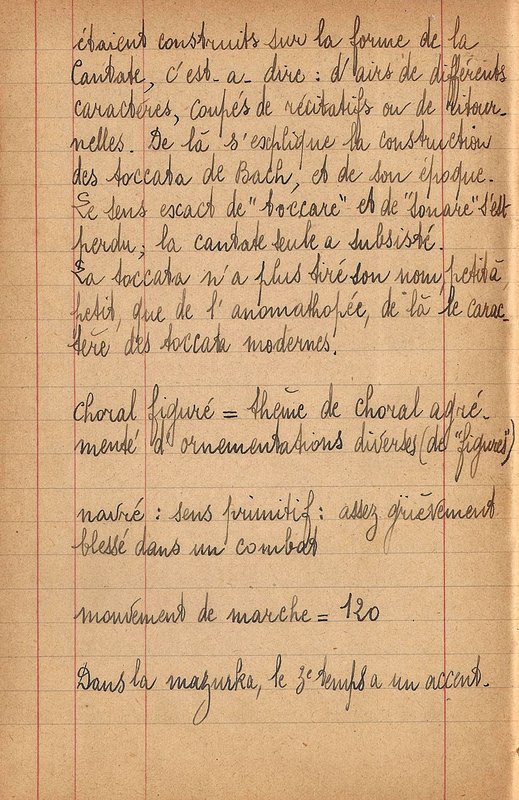 étaient construits sur la forme de la
Cantate, c'est-a-dire : d'airs de différents
caractères, coupés de récitatifs ou de ritour-
nelles. De là s'explique la construction
des toccata de Bach, et de son époque.
Le sens escact de "toccare" et de "sonare" s'est
perdu; la cantate seule a subsisté.
La toccata n'a plus tiré son nom, petit à
petit, que de l'anomathopée, de là le carac-
tère des toccata modernes.
choral figuré = thème de choral agré-
menté d'ornementations diverses (de "figures")
navré : sens primitif : assez grièvement
blessé dans un combat
mouvement de marche = 120
Dans la mazurka, le 3e temps a un accent.